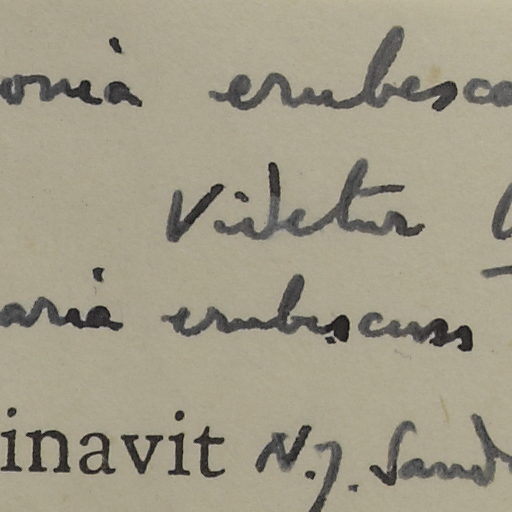 onia erubesce
Videtur
aria erubescens
inavit N.J. Sand